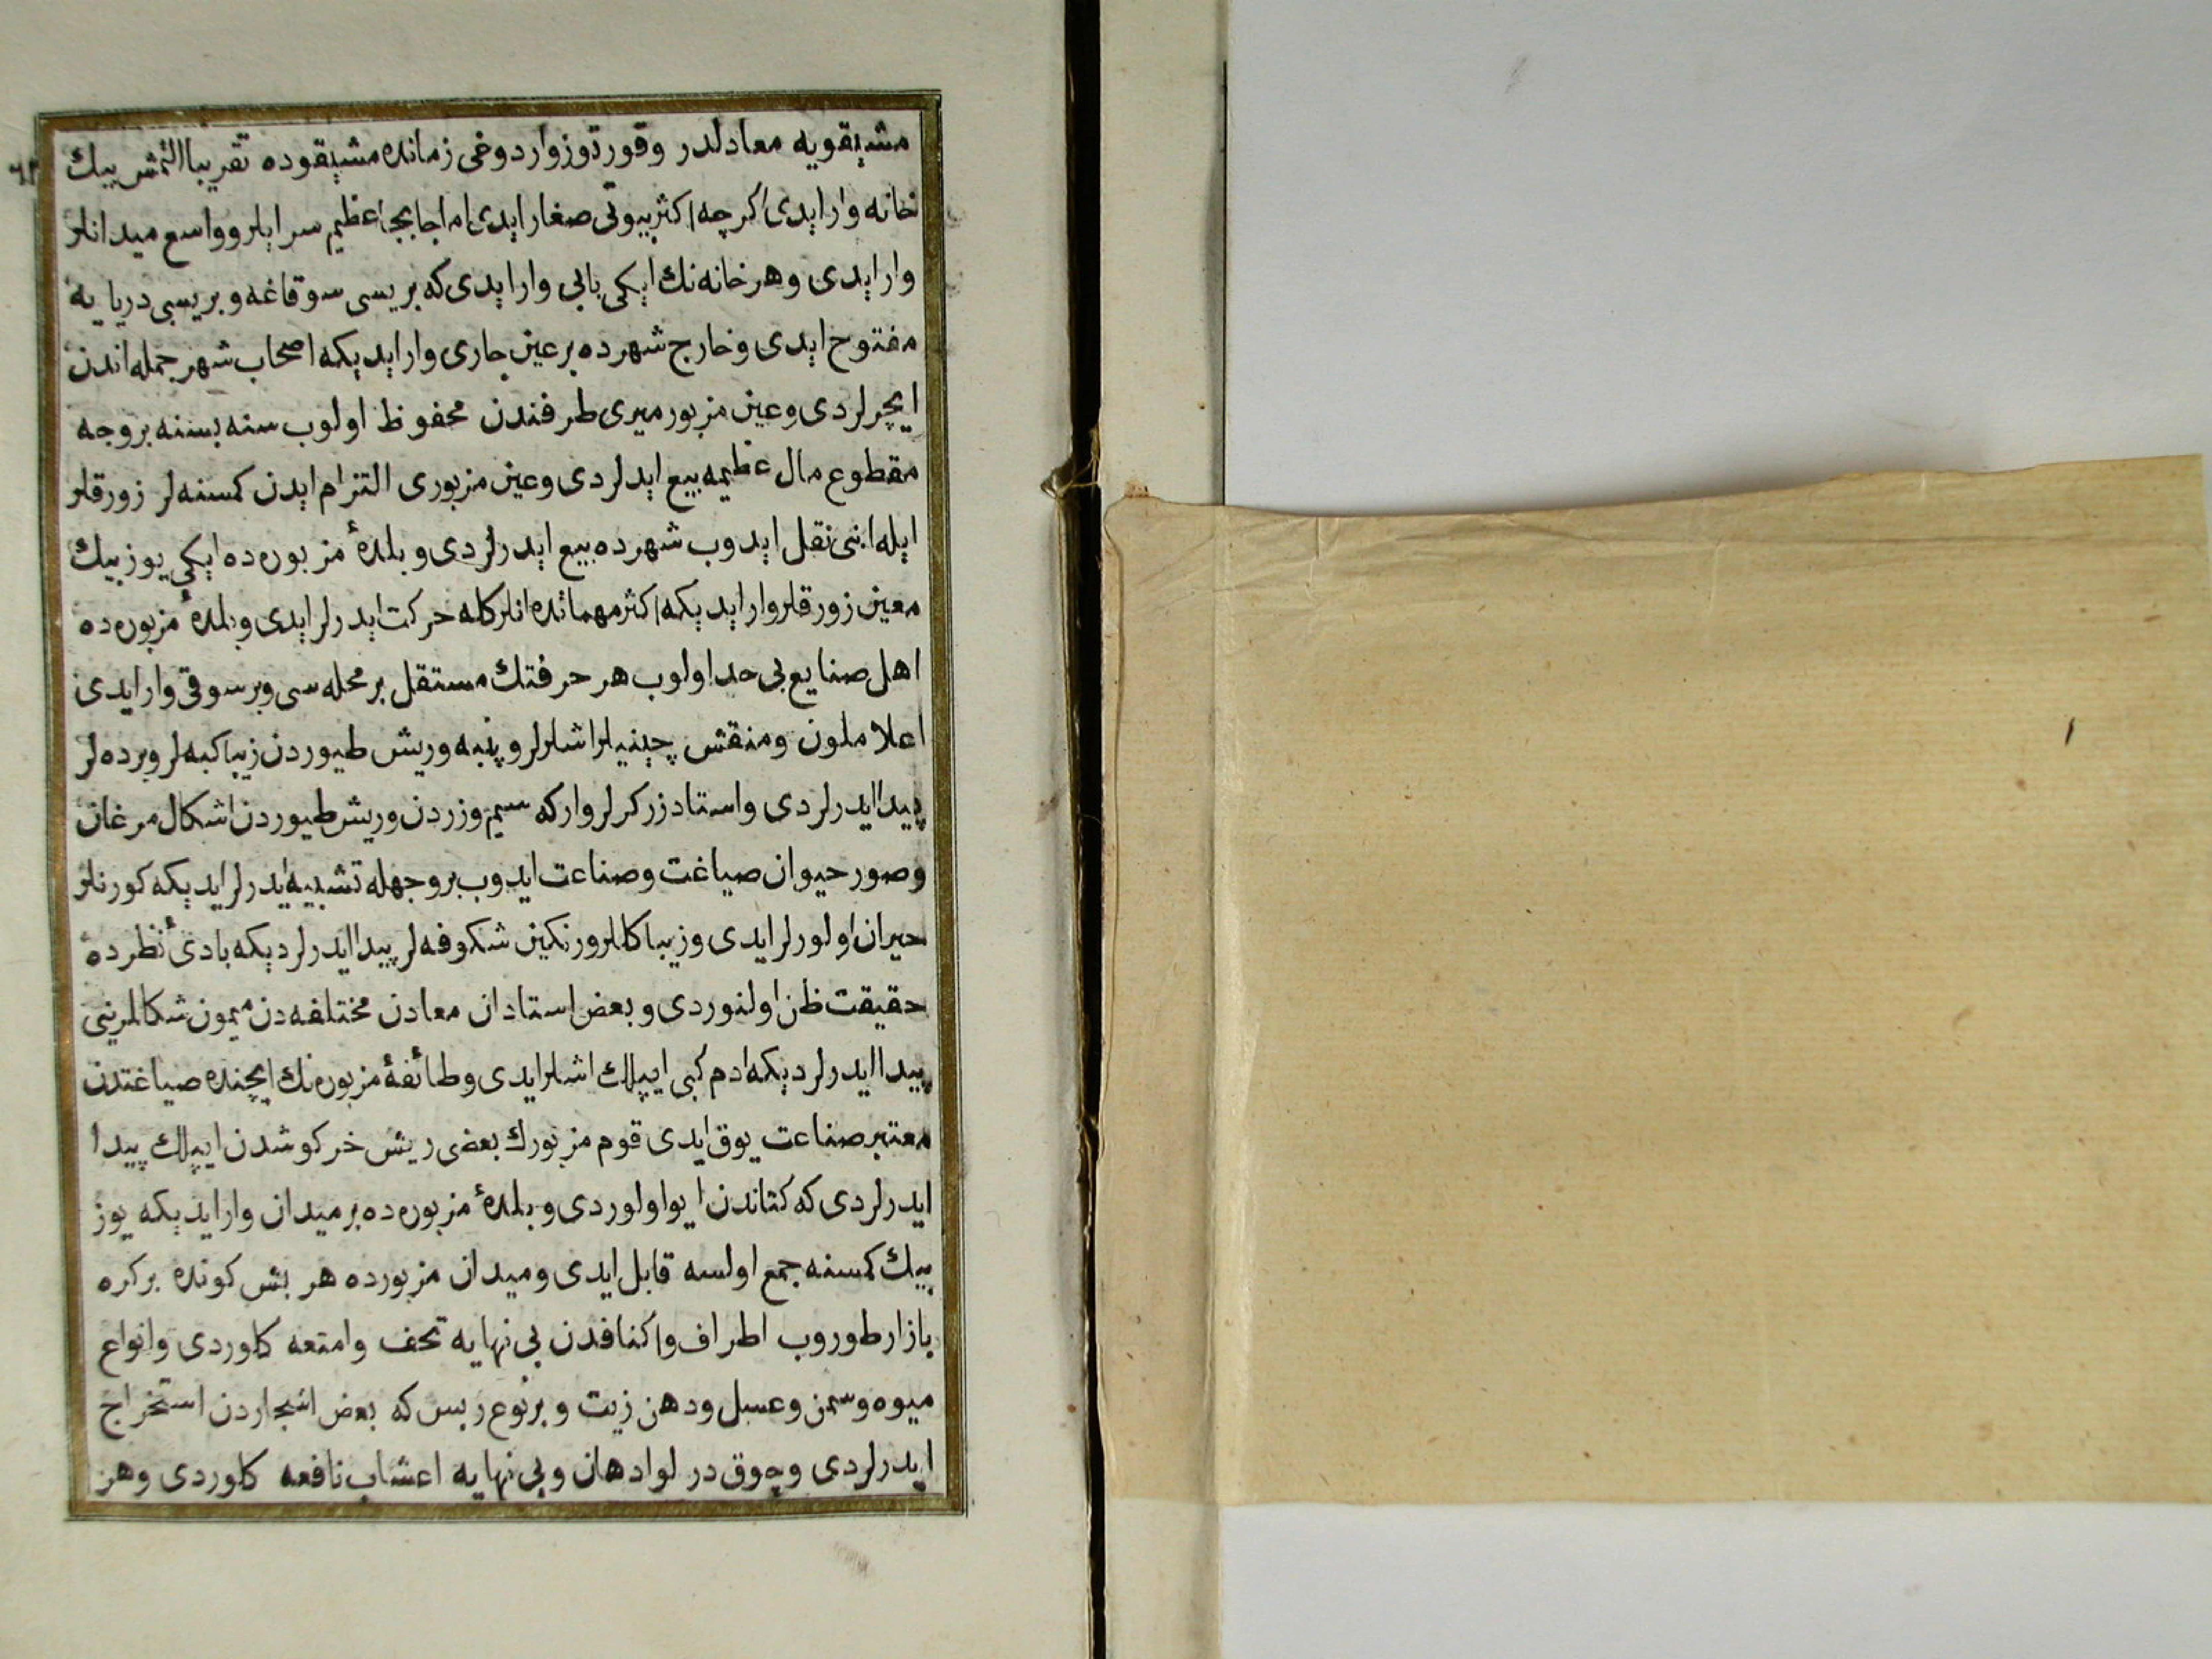 مشیقویه معادلدر وقورتوز واردوغی زمانده مشیقوده تقریبا التمش بیك
خانه وار ایدی اکرچه اکثر بیوتی صغار ایدی اما جابجا عظیم سرایلر و واسع میدانلر
وار ایدی وهر خانه نك ایکی بابی وار ایدی که بریسی سوقاغه و بریسی دریا یه
مفتوح ایدی و خارج شهرده بر عین جاری وار ایدیکه اصحاب شهر جمله اندن
ایچرلردی و عین مزبور میری طرفندن محفوظ اولوب سنه بسنه بر وجه
مقطوع مال عظیمه بیع ایدلردی و عین مزبوری التزام ایدن کمسنه لر زورقلر
ایله انی نقل ایدوب شهرده بیع ایدرلردی و بلدهٔ مزبوره ده ایکی یوز بیك
معین زورقلر وار ایدیکه اکثر مهماتده انلرکله حرکت ایدرلر ایدی و بلدهٔ مزبوره ده
اهل صنایع بی حد اولوب هر حرفتك مستقل بر محله سی و بر سوقی وار ایدی
اعلا ملون و منقش چینیلر اشلرلر و پنبه و ریش طیوردن زیبا کبه لر و پرده لر
پیدا ایدرلردی و استاد زرکرلر وار که سیم و زردن و ریش طیوردن اشکال مرغان
و صور حیوان صیاغت و صناعت ایدوب بر وجهله تشبیه ایدرلر ایدیکه کورنلر
حیران اولورلر ایدی و زیبا کللر و رنکین شکوفه لر پیدا ایدرلردیکه بادئ نظرده
حقیقت ظن اولنوردی و بعض استادان معادن مختلفه دن میمون شکللرینی
پیدا ایدرلردیکه ادم کبی ایپلك اشلر ایدی و طائفهٔ مزبوره نك ایچنده صیاغتدن
معتبر صناعت یوق ایدی قوم مزبورك بعضی ریش خرکوشدن ایپلك پیدا
ایدرلردی که کتاندن ایو اولوردی و بلدهٔ مزبوره ده بر میدان وار ایدیکه یوز
بیك کمسنه جمع اولسه قابل ایدی و میدان مزبورده هر بش کونده بر کره
بازار طوروب اطراف و اکنافدن بی نهایه تحف و امتعه کلوردی و انواع
میوه و سمن و عسل و دهن زیت و بر نوع ربس که بعض اشجاردن استخراج
ایدرلردی و چوق درلو ادهان و بی نهایه اعشاب نافعه کلوردی و هر